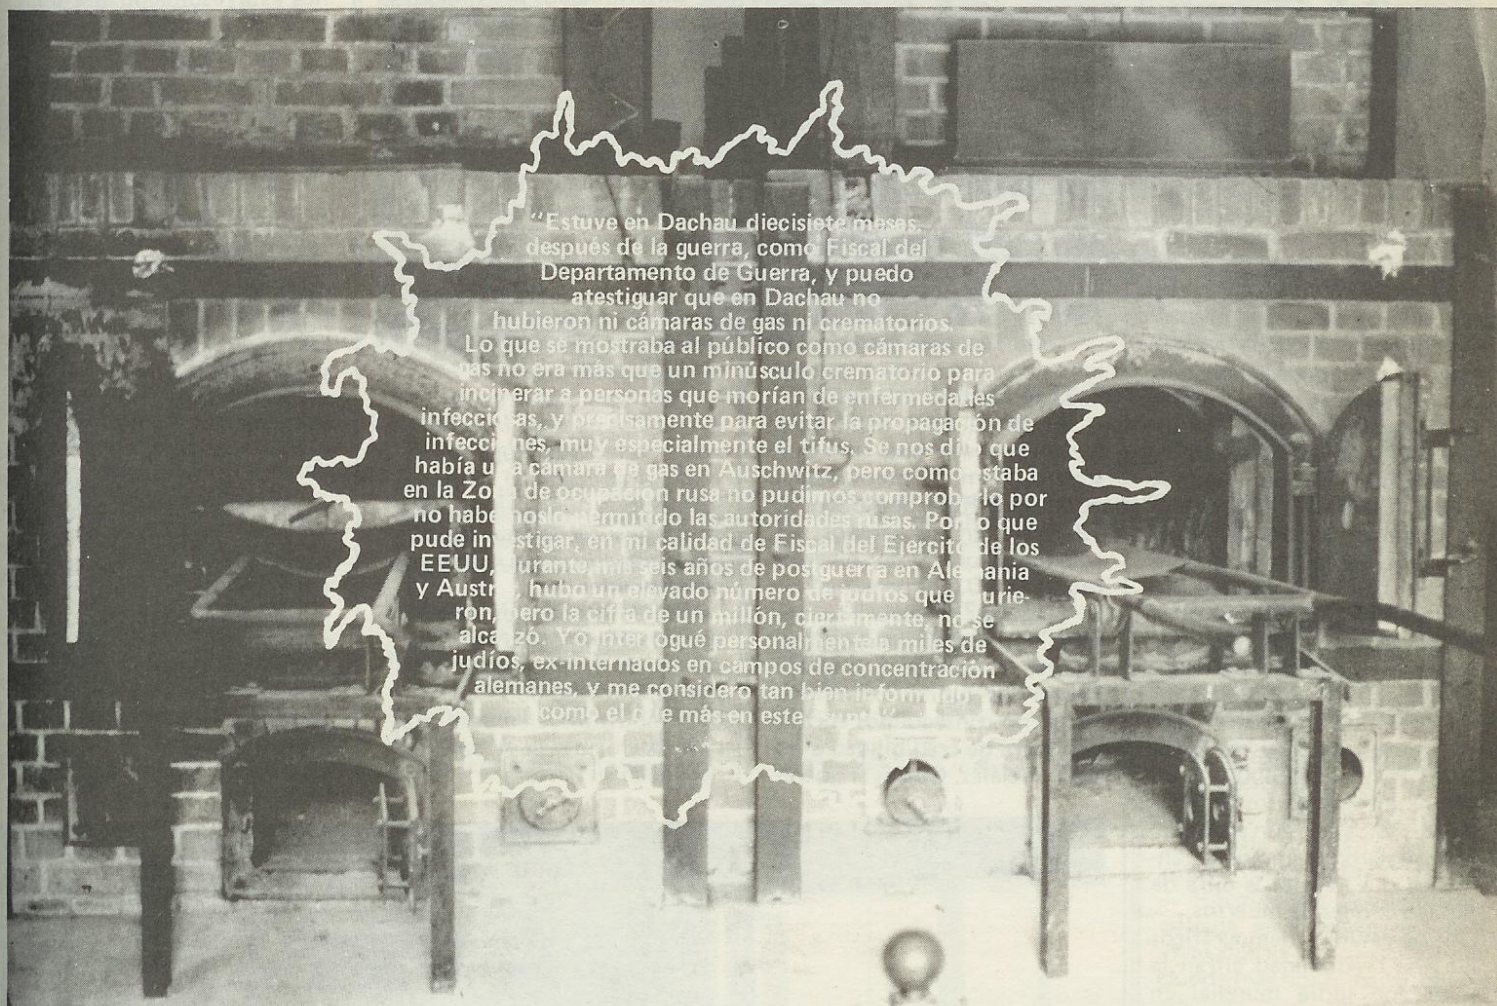 “Estuve en Dachau diecisiete meses,
después de la guerra, como Fiscal del
Departamento de Guerra, y puedo
atestiguar que en Dachau no
hubieron ni cámaras de gas ni crematorios.
Lo que se mostraba al público como cámaras de
gas no era más que un minúsculo crematorio para
incinerar a personas que morían de enfermedades
infecciosas, y precisamente para evitar la propagación de
infecciones, muy especialmente el tifus. Se nos dijo que
había una cámara de gas en Auschwitz, pero como estaba
en la Zona de ocupación rusa no pudimos comprobarlo por
no habérnoslo permitido las autoridades rusas. Por lo que
pude investigar, en mi calidad de Fiscal del Ejercito de los
EEUU, durante mis seis años de postguerra en Alemania
y Austria, hubo un elevado número de judíos que murie-
ron, pero la cifra de un millón, ciertamente, no se
alcanzó. Yo interrogué personalmente a miles de
judíos, ex-internados en campos de concentración
alemanes, y me considero tan bien informado
como el que más en este asunto”